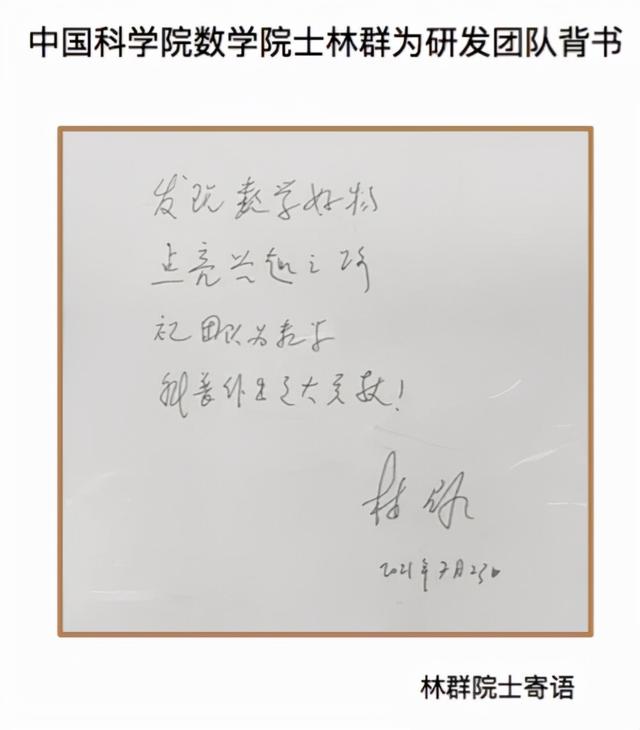 中国科学院数学院士林群为研发团队背书
发现数学好物
点亮兴趣之路
祝团队为数学
科普作出更大贡献!
林群
2021年7月23日
林群院士寄语